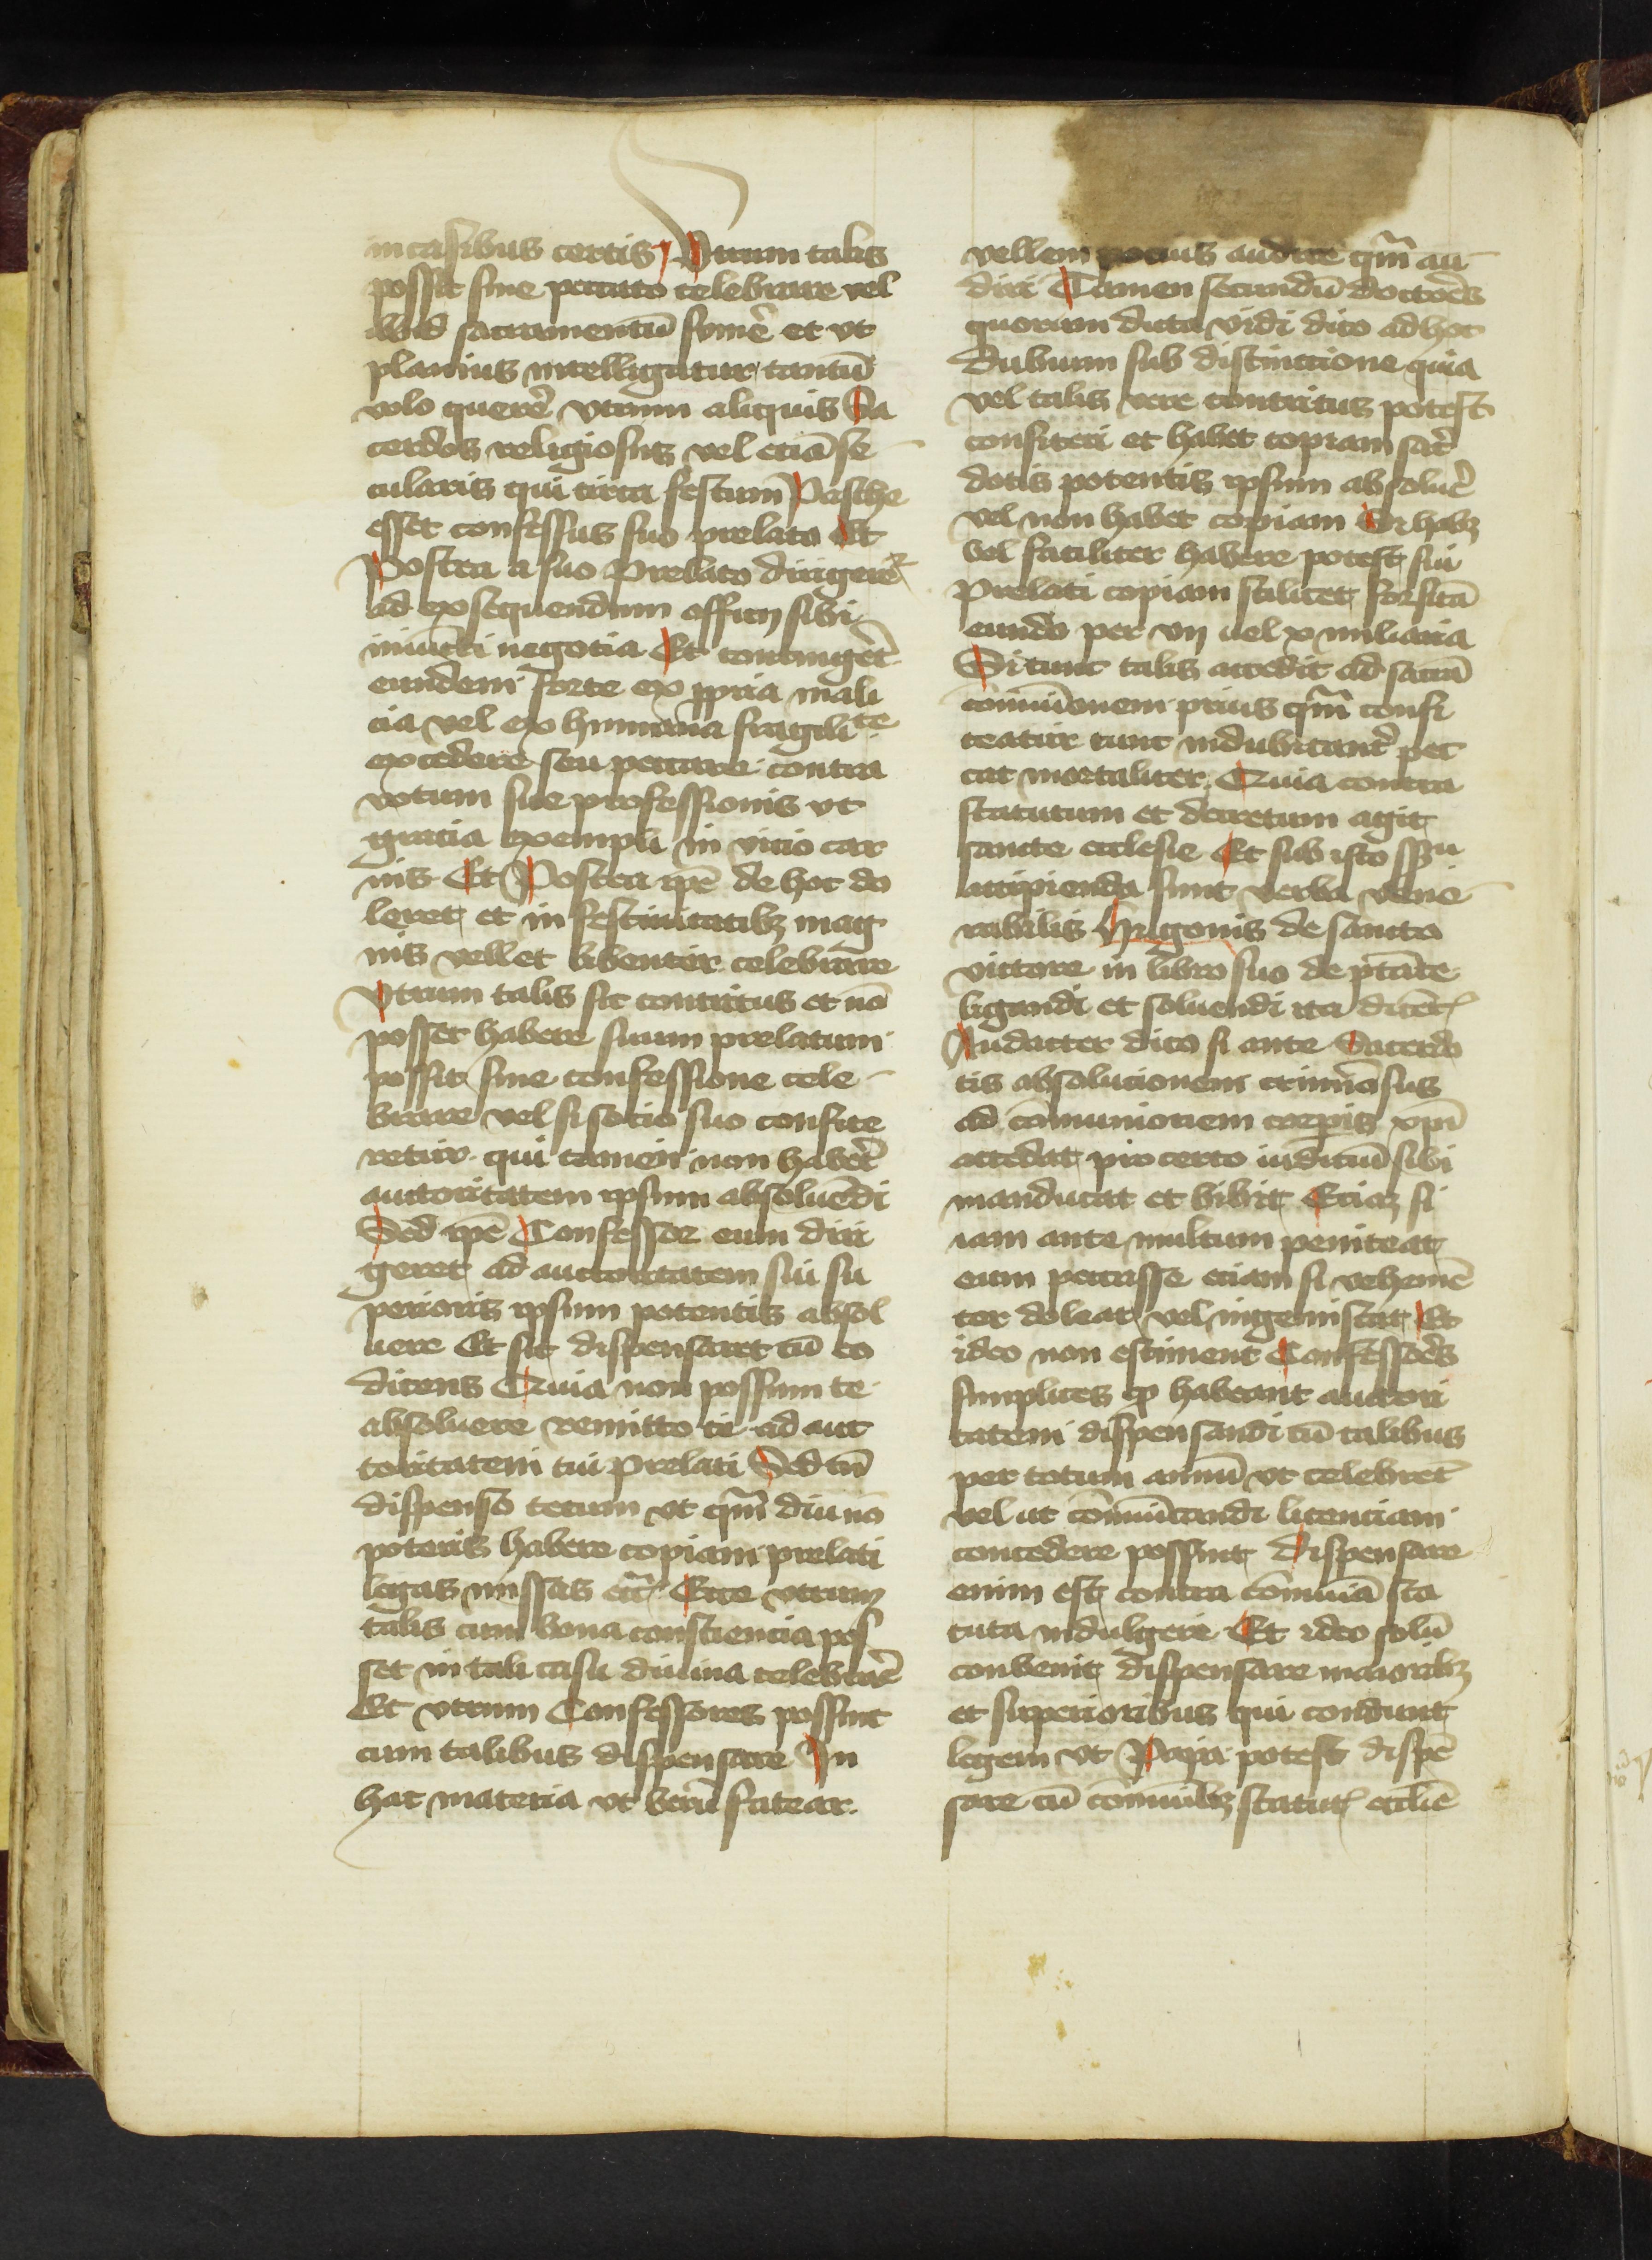 in casibus certis Vtrum talis
possit sine peccato celebrare vel
illud sacramentū sumē et vt
planius intelligatur tantū
volo querē vtrum aliquis Sa
cerdos religiosus vel eciā se
cularis qui circa festum Pasche
esset confessus suo prelato Et
Postea a suo Prelato dirigere
ad exsequendum officij sibi
iniūcti negotia Et contingēt
eundem forte ex ꝓpria mali
cia vel ex humana fragilite
excedere seu peccare contra
votum sue professionis vt
gratia exempli in vicio car
nis Et Postea ipē de hoc do
leret et in festiuitatibꝫ mag
nis vellet libenter celebrare
Vtrum talis sic contritus et nō
posset habere suum prelatum
possit sine confessione cele
brare vel si socio suo confite
retur qui tamen non habēt
auctoritatem ipsum absoluēdi
Sed ipē Confessor eum diri
geret ad auctoritatem sui su
perioris ipsum potentis absol
uere Et sic dispensaret cū eo
dicens Quia non possum te
absoluere remitto te ad auc
toritatem tui prelati Sed tn̄
dispenso tecum vt qm̄ diu nō
poteris habere copiam prelati
legas missas etc̄ Ecce vtrum
talis cum bona consciencia pos
set in tali casu diuina celebrarē
Et vtrum Confessores possint
cum talibus dispensare In
hac materia vt verū fatear
vellem pocius audire qm̄ au
diri Tamen secundū doctoēs
quorum dicta vidi dico ad hoc
dubium sub distinctione quia
vel talis vere contritus potest
confiteri et habet copiam sacē
dotis potentis ipsum absoluē
vel non habet copiam Si habꝫ
vel faciliter habere potest sui
Prelati copiam scilicet forsitā
eundo per vij uel x miliaria
Si tunc talis accedit ad sacrā
cōmūionem prius qm̄ confi
teatur tunc indubitantē pec
cat mortaliter Quia contra
statutum et decretum agit
sancte ecclesie Et sub isto
accipienda sunt verba vene
rabilis Hugonis de sancto
victore in libro suo de ptāte
ligandi et soluendi ita dicēt
Audacter dico si ante Sacerdo
tis absolucionem criminosus
ad cōmunionem corpis xp̄i
accedat pro certo iudiciū sibi
manducat et bibit Eciaꝫ si
iam ante multum peniteat
eum peccasse etiam si vehemē
ter doleat vel ingemiscat Et
ideo non estiment Confessoēs
simplices ꝙ habeant auctori
tatem dispensandi cū talibus
per totum annū vt celebrēt
vel ut cōmūicandi licenciam
concedere possint Dispensare
enim est contra cōmūiā sta
tuta indulgere Et ideo solū
convenit dispensare maioribꝫ
et superioribus qui condunt
legem vt Papa potest dispē
sare cū cōmunibꝫ statut ecclīe